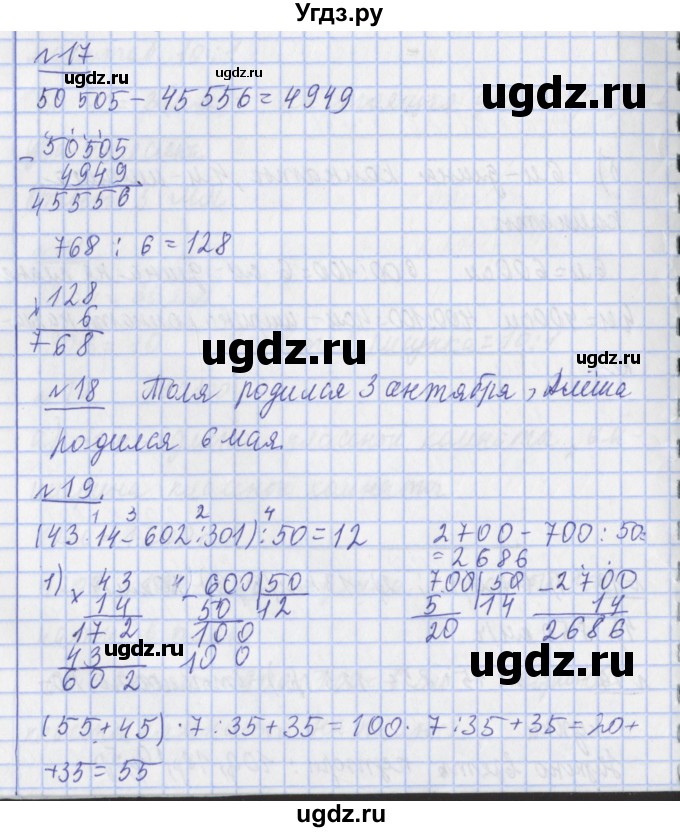 Угдз.ру
№17
50 505 - 45 556 = 4949
- 50505
4949
45556
768 : 6 = 128
× 128
6
768
№18 Толя родился 3 сентября, Алёша
родился 6 мая.
№19.
1 3 2 4
(43 · 14 - 602 : 301) : 50 = 12
2700 - 700 : 50 =
= 2686
1) × 43
14
172
43
602
4 - 600 | 50
50 | 12
100
100
700 | 50
5 | 14
20
- 2700
14
2686
(55 + 45) · 7 : 35 + 35 = 100 · 7 : 35 + 35 = 20 +
+ 35 = 55
ugdz.ru
ugdz.ru
ugdz.ru
ugdz.ru
ugdz.ru
ugdz.ru
ugdz.ru
ugdz.ru
ugdz.ru
ugdz.ru
ugdz.ru
ugdz.ru